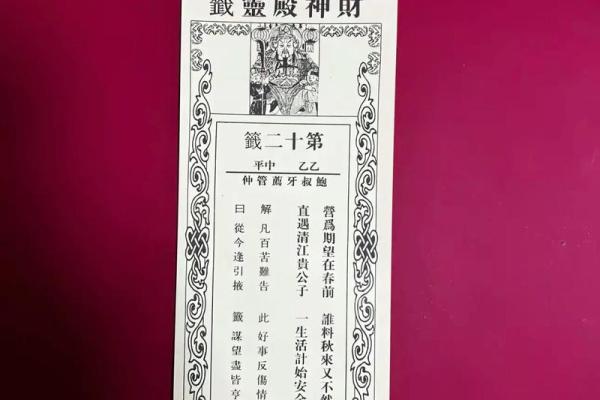 財神殿靈籤
第十二籤
乙乙 中平
鮑叔牙薦管仲
營爲期望在春前 誰料秋來又不然
直遇清江貴公子 一生活計始安全
解 凡百苦難告 此 好事反傷情
曰 從今逢引掖 籤 謀望盡皆亨